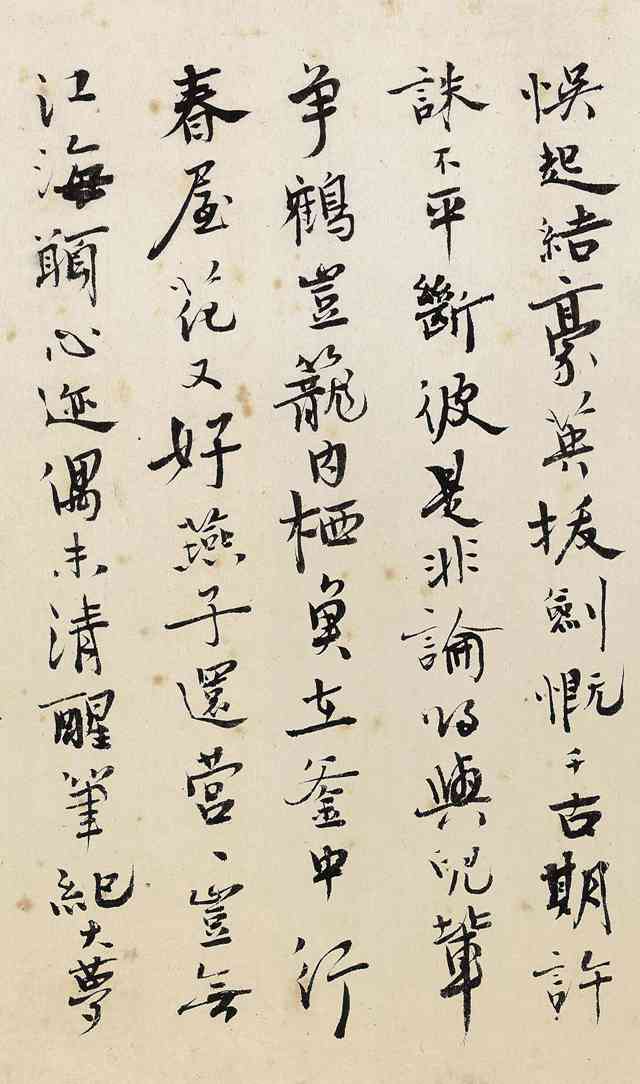 悞起結豪英拔劍慨千古期許
誅不平斷彼是非論與兒輩
争鶴豈籠內栖魚在釜中行
春屋花又好燕子還營、豈無
江海願心迹偶未清醒筆紀大夢